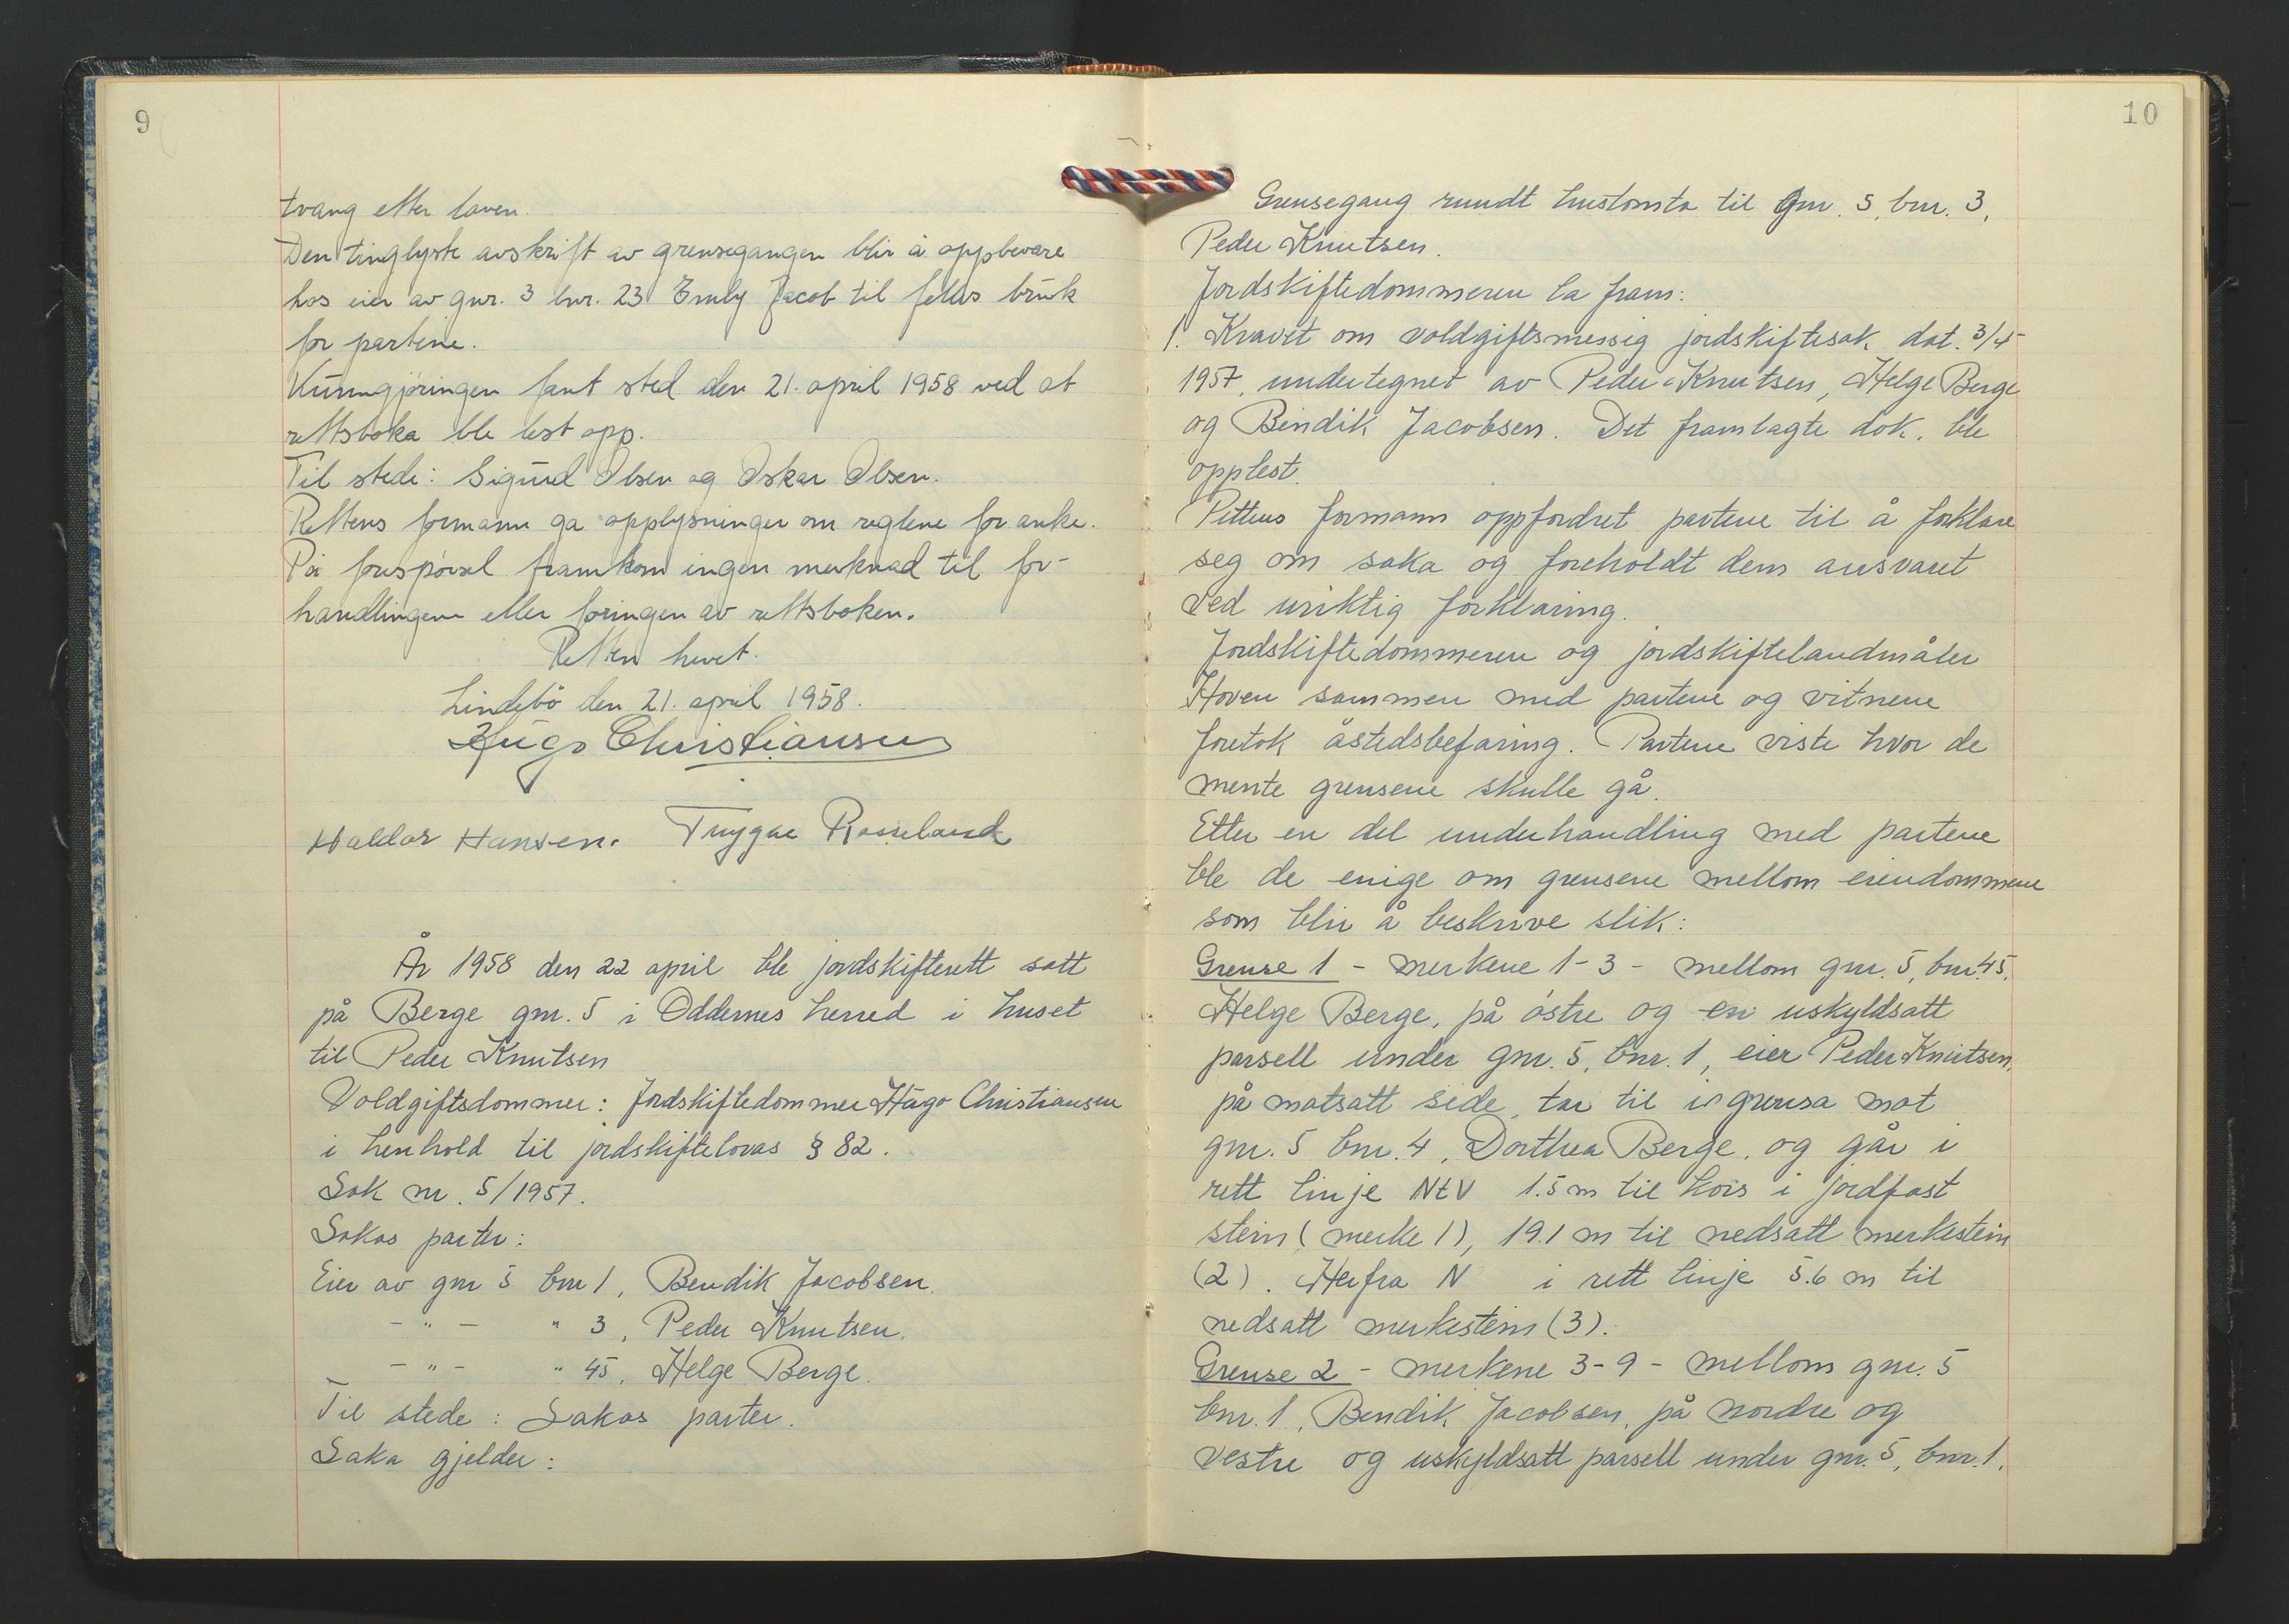 9
tvang etter loven.
Den tinglyste avskrift av grensegangen blir å oppbevare
hos eier av gnr. 3 bnr. 23 Emly Jacob til felles bruk
for partene.
Kunngjøringen fant sted den 21. april 1958 ved at
rettsboka ble lest opp.
Til stede: Sigurd Olsen og Oskar Olsen.
Rettens formann ga opplysninger om reglene for anke.
På forespørsel framkom ingen merknad til for-
handlingene eller føringen av rettsboken.
Retten hevet.
Lindebø den 21. april 1958.
Hugo Christiansen
Haldor Hansen. Trygve Rosseland
År 1958 den 22 april ble jordskifterett satt
på Berge gnr. 5 i Oddernes herred i huset
til Peder Knutsen
Voldgiftsdommer: Jordskiftedommer Hugo Christiansen
i henhold til jordskiftelovas § 82.
Sak nr. 5/1957.
Sakas parter:
Eier av gnr 5 bnr 1, Bendik Jacobsen.
- " - " 3, Peder Knutsen.
- " - " 45, Helge Berge.
Til stede: Sakas parter.
Saka gjelder:
10
Grensegang rundt hustomta til gnr. 5, bnr. 3,
Peder Knutsen.
Jordskiftedommeren la fram:
1. Kravet om voldgiftsmessig jordskiftesak dat. 3/4
1957, undertegnet av Peder Knutsen, Helge Berge
og Bendik Jacobsen. Det framlagte dok. ble
opplest.
Rettens formann oppfordret partene til å forklare
seg om saka og foreholdt dem ansvaret
ved uriktig forklaring.
Jordskiftedommeren og jordskiftelandmåler
Hoven sammen med partene og vitnene
foretok åstedsbefaring. Partene viste hvor de
mente grensene skulle gå.
Etter en del underhandling med partene
ble de enige om grensene mellom eiendommene
som blir å beskrive slik:
Grense 1 - merkene 1-3 - mellom gnr. 5, bnr. 45,
Helge Berge, på østre og en uskyldsatt
parsell under gnr. 5, bnr. 1, eier Peder Knutsen,
på motsatt side, tar til i grensa mot
gnr. 5 bnr. 4, Dorthea Berge, og går i
rett linje NtV 1.5 m til kors i jordfast
stein (merke 1), 19.1 m til nedsatt merkestein
(2). Herfra N i rett linje 5.6 m til
nedsatt merkestein (3).
Grense 2 - merkene 3-9 - mellom gnr. 5
bnr. 1, Bendik Jacobsen, på nordre og
vestre og uskyldsatt parsell under gnr. 5, bnr. 1,